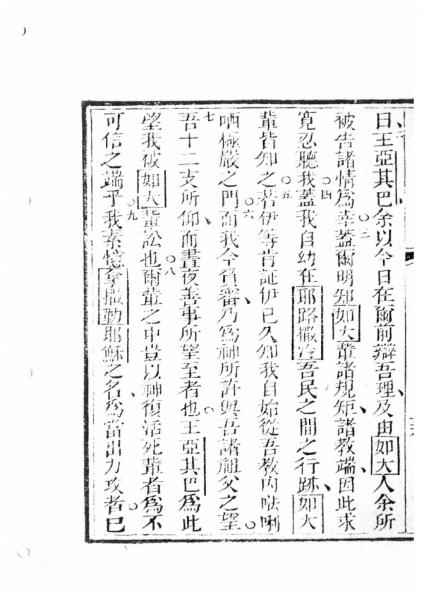 日王亞其巴余以今日在爾前辯吾理及由如大人余所
被告諸情為幸三蓋爾明知如大輩諸規矩諸教端因此求
寬忍聽我四蓋我自幼在耶路撒冷吾民之間之行跡如大
輩皆知之五若伊等肯証伊已久知我自始從吾教內唎
哂極嚴之門六而我今審乃為神所許與吾諸祖父之望
七吾十二支所仰而晝夜善事所望至者也王亞其巴為此
望我被如大輩訟也八爾輩之中豈以神復活死輩者為不
可信之端乎九我素憶拿撒勒耶穌之名為當出力攻者已